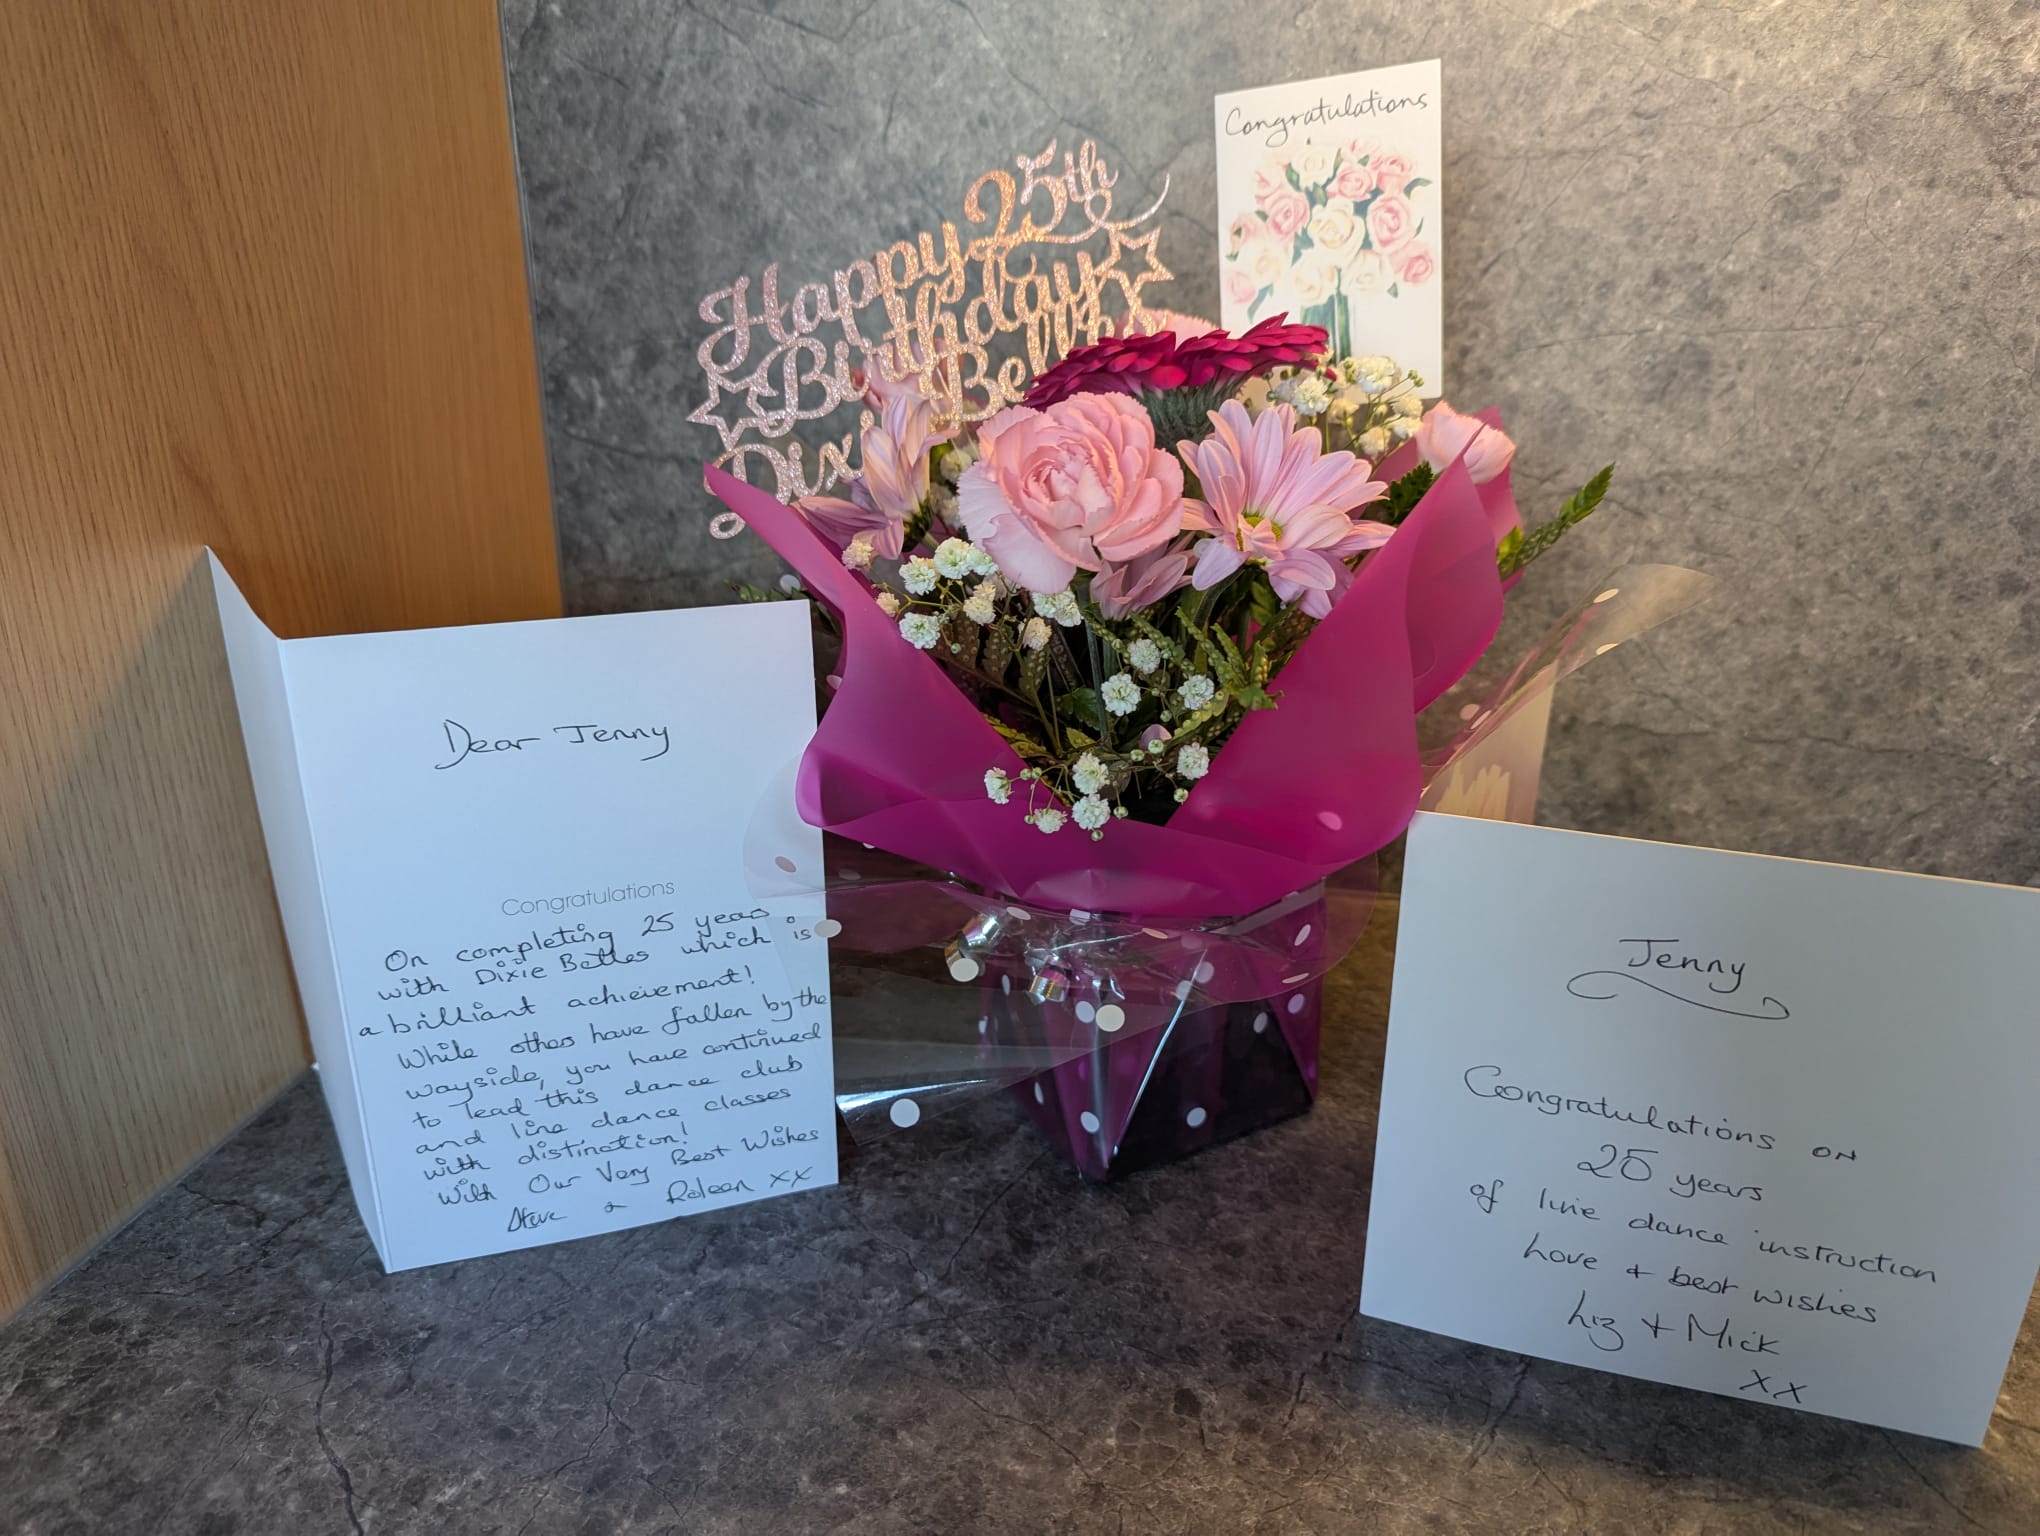 Congratulations
Happy 25th
Birthday
Dixie Belles
Dear Jenny
Congratulations
On completing 25 years
with Dixie Belles which is
a brilliant achievement!
While others have fallen by the
wayside, you have continued
to lead this dance club
and line dance classes
with distinction!
With Our Very Best Wishes
Steve & Roleen XX
Jenny
Congratulations on
25 years
of line dance instruction
Love + best wishes
Liz + Mick
XX